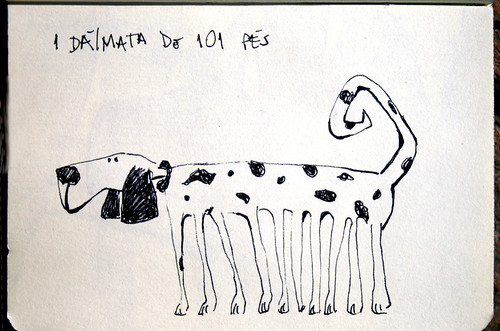 1 DÁLMATA DE 101 PÉS